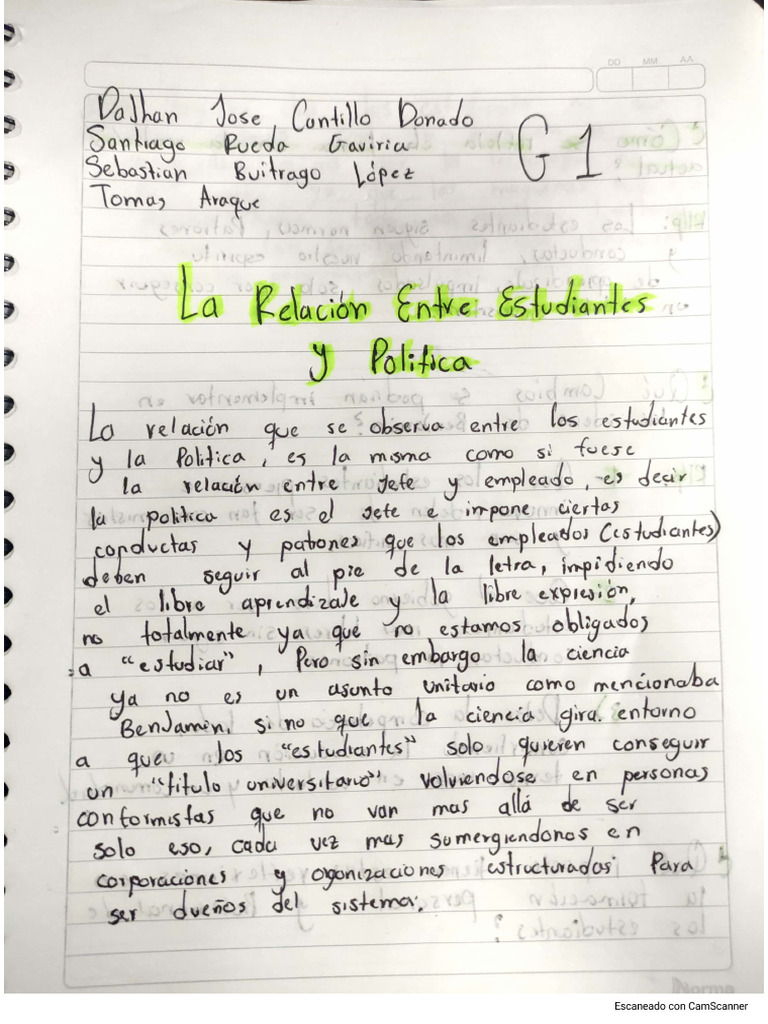 DD MM AA
Dalhan Jose Cantillo Donado
Santiago Rueda Gaviria
G1
Sebastian Buitrago López
Tomas Araque
La Relación Entre Estudiantes
y Politica
La relación que se observa entre los estudiantes
y la Politica, es la misma como si fuese
la relación entre Jefe y empleado, es decir
la politica es el Jefe e impone ciertas
conductas y patones que los empleados (estudiantes)
deben seguir al pie de la letra, impidiendo
el libre aprendizaje y la libre expresión,
no totalmente ya que no estamos obligados
a "estudiar", Pero sin embargo la ciencia
ya no es un asunto unitario como mencionaba
Benjamin, si no que la ciencia gira entorno
a que los "estudiantes" solo quieren conseguir
un "titulo universitario" volviendose en personas
conformistas que no van mas allá de ser
solo eso, cada vez mas sumergiendonos en
corporaciones y oganizaciones estructuradas Para
ser dueños del sistema.
Norma
Escaneado con CamScanner